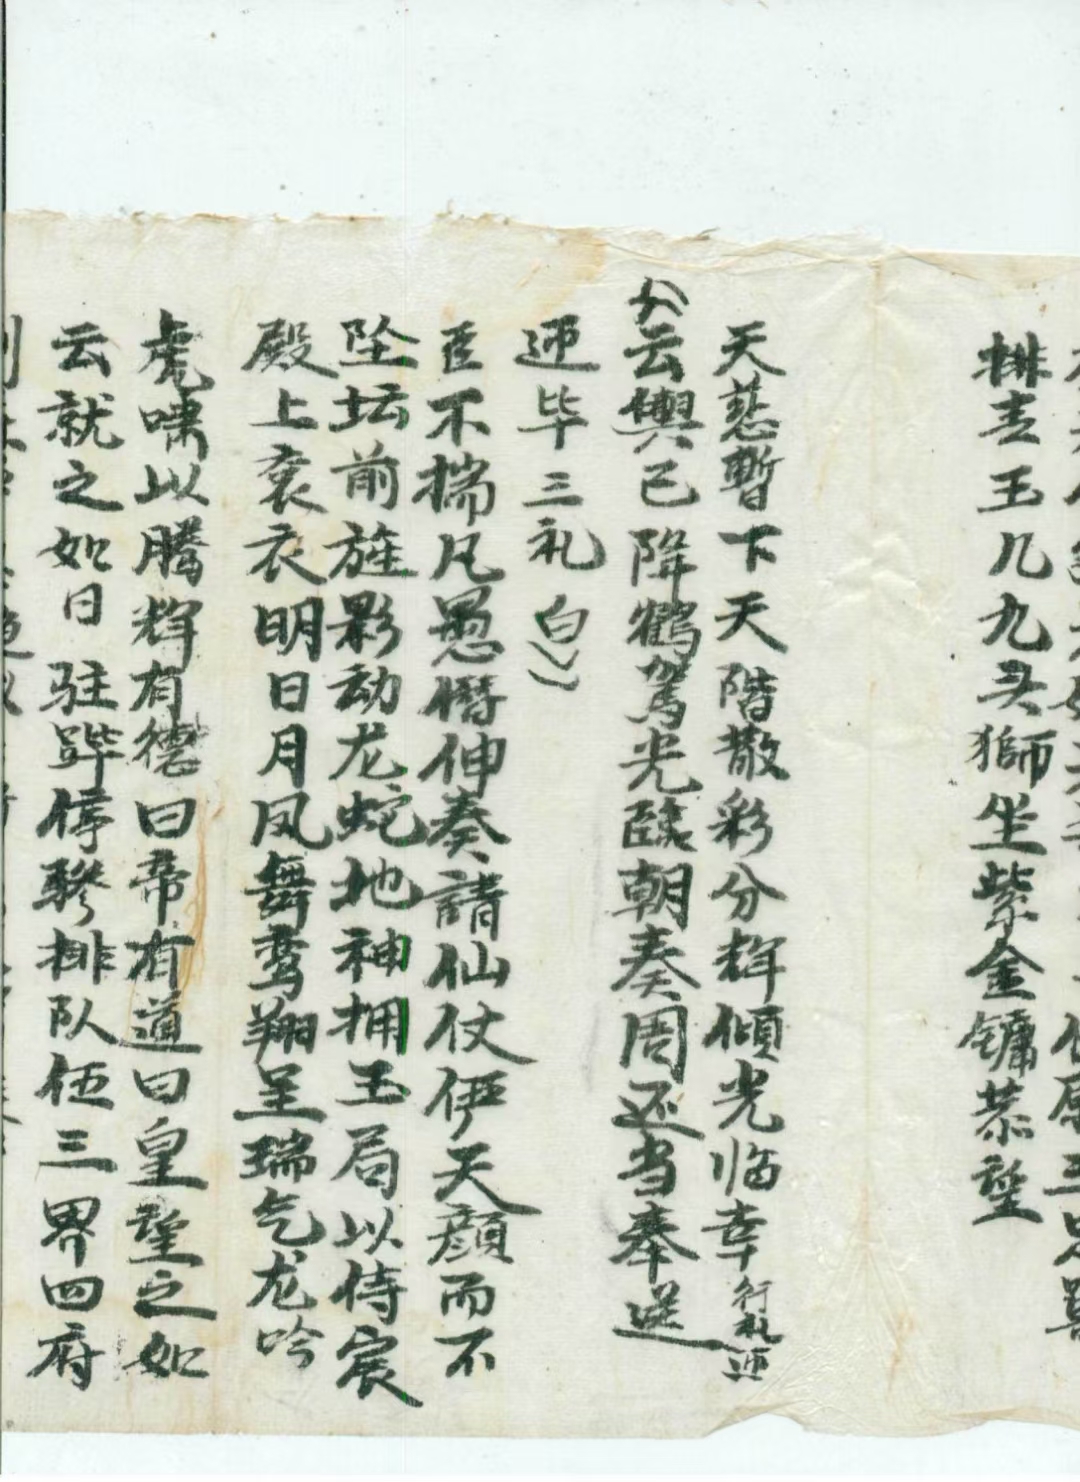 排班玉几九头狮坐紫金镛恭望
天慈暫下天階散彩分辉傾光临幸行礼迎
云輿已降鶴驾光臨朝奏周还当奉送
迎毕三礼 白
臣不揣凡愚僭伸奏請仙仗伊天颜而不
坠坛前旌影动龙蛇地神拥玉局以侍宸
殿上衮衣明日月凤舞鸾翔呈瑞气龙吟
虎啸以腾辉有德曰帝有道曰皇望之如
云就之如日驻跸停骖排队伍三界四府